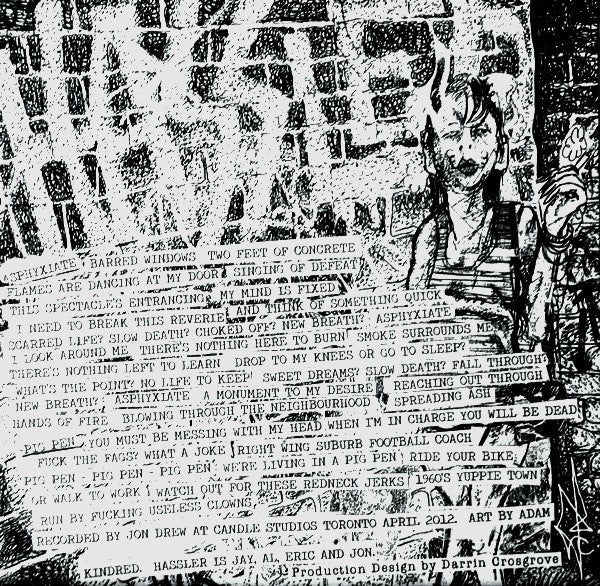 ASPHYXIATE BARRED WINDOWS TWO FEET OF CONCRETE
FLAMES ARE DANCING AT MY DOOR SINGING OF DEFEAT
THIS SPECTACLE'S ENTRANCING MY MIND IS FIXED
I NEED TO BREAK THIS REVERIE AND THINK OF SOMETHING QUICK
SCARRED LIFE? SLOW DEATH? CHOKED OFF? NEW BREATH? ASPHYXIATE
I LOOK AROUND ME THERE'S NOTHING HERE TO BURN SMOKE SURROUNDS ME
THERE'S NOTHING LEFT TO LEARN DROP TO MY KNEES OR GO TO SLEEP?
WHAT'S THE POINT? NO LIFE TO KEEP SWEET DREAMS? SLOW DEATH? FALL THROUGH?
NEW BREATH? ASPHYXIATE A MONUMENT TO MY DESIRE REACHING OUT THROUGH
HANDS OF FIRE BLOWING THROUGH THE NEIGHBOURHOOD SPREADING ASH
PIG PEN YOU MUST BE MESSING WITH MY HEAD WHEN I'M IN CHARGE YOU WILL BE DEAD
FUCK THE FAGS? WHAT A JOKE RIGHT WING SUBURB FOOTBALL COACH
PIG PEN - PIG PEN - PIG PEN WE'RE LIVING IN A PIG PEN RIDE YOUR BIKE
OR WALK TO WORK WATCH OUT FOR THESE REDNECK JERKS 1960'S YUPPIE TOWN
RUN BY FUCKING USELESS CLOWNS
RECORDED BY JON DREW AT CANDLE STUDIOS TORONTO APRIL 2012. ART BY ADAM
KINDRED. HASSLER IS JAY, AL, ERIC AND JON.
Production Design by Darrin Crosgrove